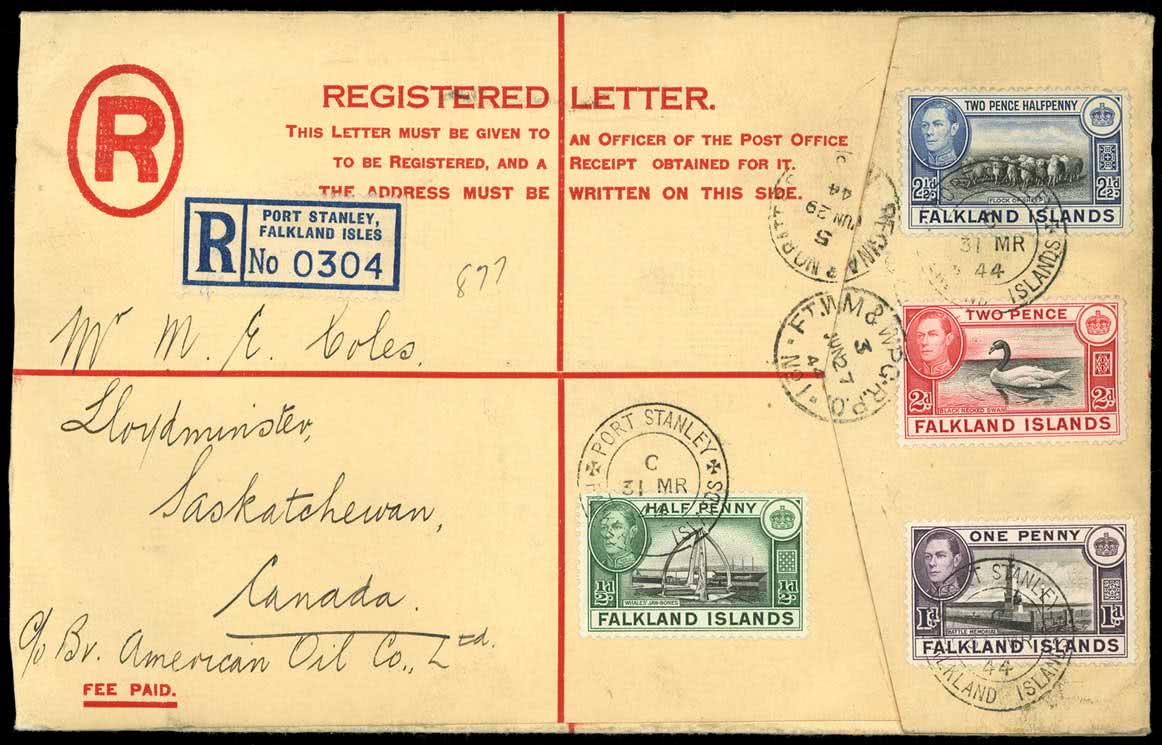 R
REGISTERED LETTER.
THIS LETTER MUST BE GIVEN TO AN OFFICER OF THE POST OFFICE
TO BE REGISTERED, AND A RECEIPT OBTAINED FOR IT.
THE ADDRESS MUST BE WRITTEN ON THIS SIDE.
R
PORT STANLEY,
FALKLAND ISLES
No 0304
877
Mr M. E. Coles,
Lloydminster,
Saskatchewan,
Canada.
c/o Br. American Oil Co., Ltd.
FEE PAID.
TWO PENCE HALFPENNY
2½d 2½d
FLOCK OF SHEEP
FALKLAND ISLANDS
31 MR
44
ISLANDS
REGINA &
5
JUN 28
44
FT. WM & WPG. R.P.O. No 1
3
JUN 27
44
TWO PENCE
2d 2d
BLACK NECKED SWAN
FALKLAND ISLANDS
PORT STANLEY
C
31 MR
HALF PENNY
½d ½d
WHALES' JAW-BONES
FALKLAND ISLANDS
ONE PENNY
1d 1d
BATTLE MEMORIAL
FALKLAND ISLANDS
STANLEY
44
FALKLAND ISLANDS